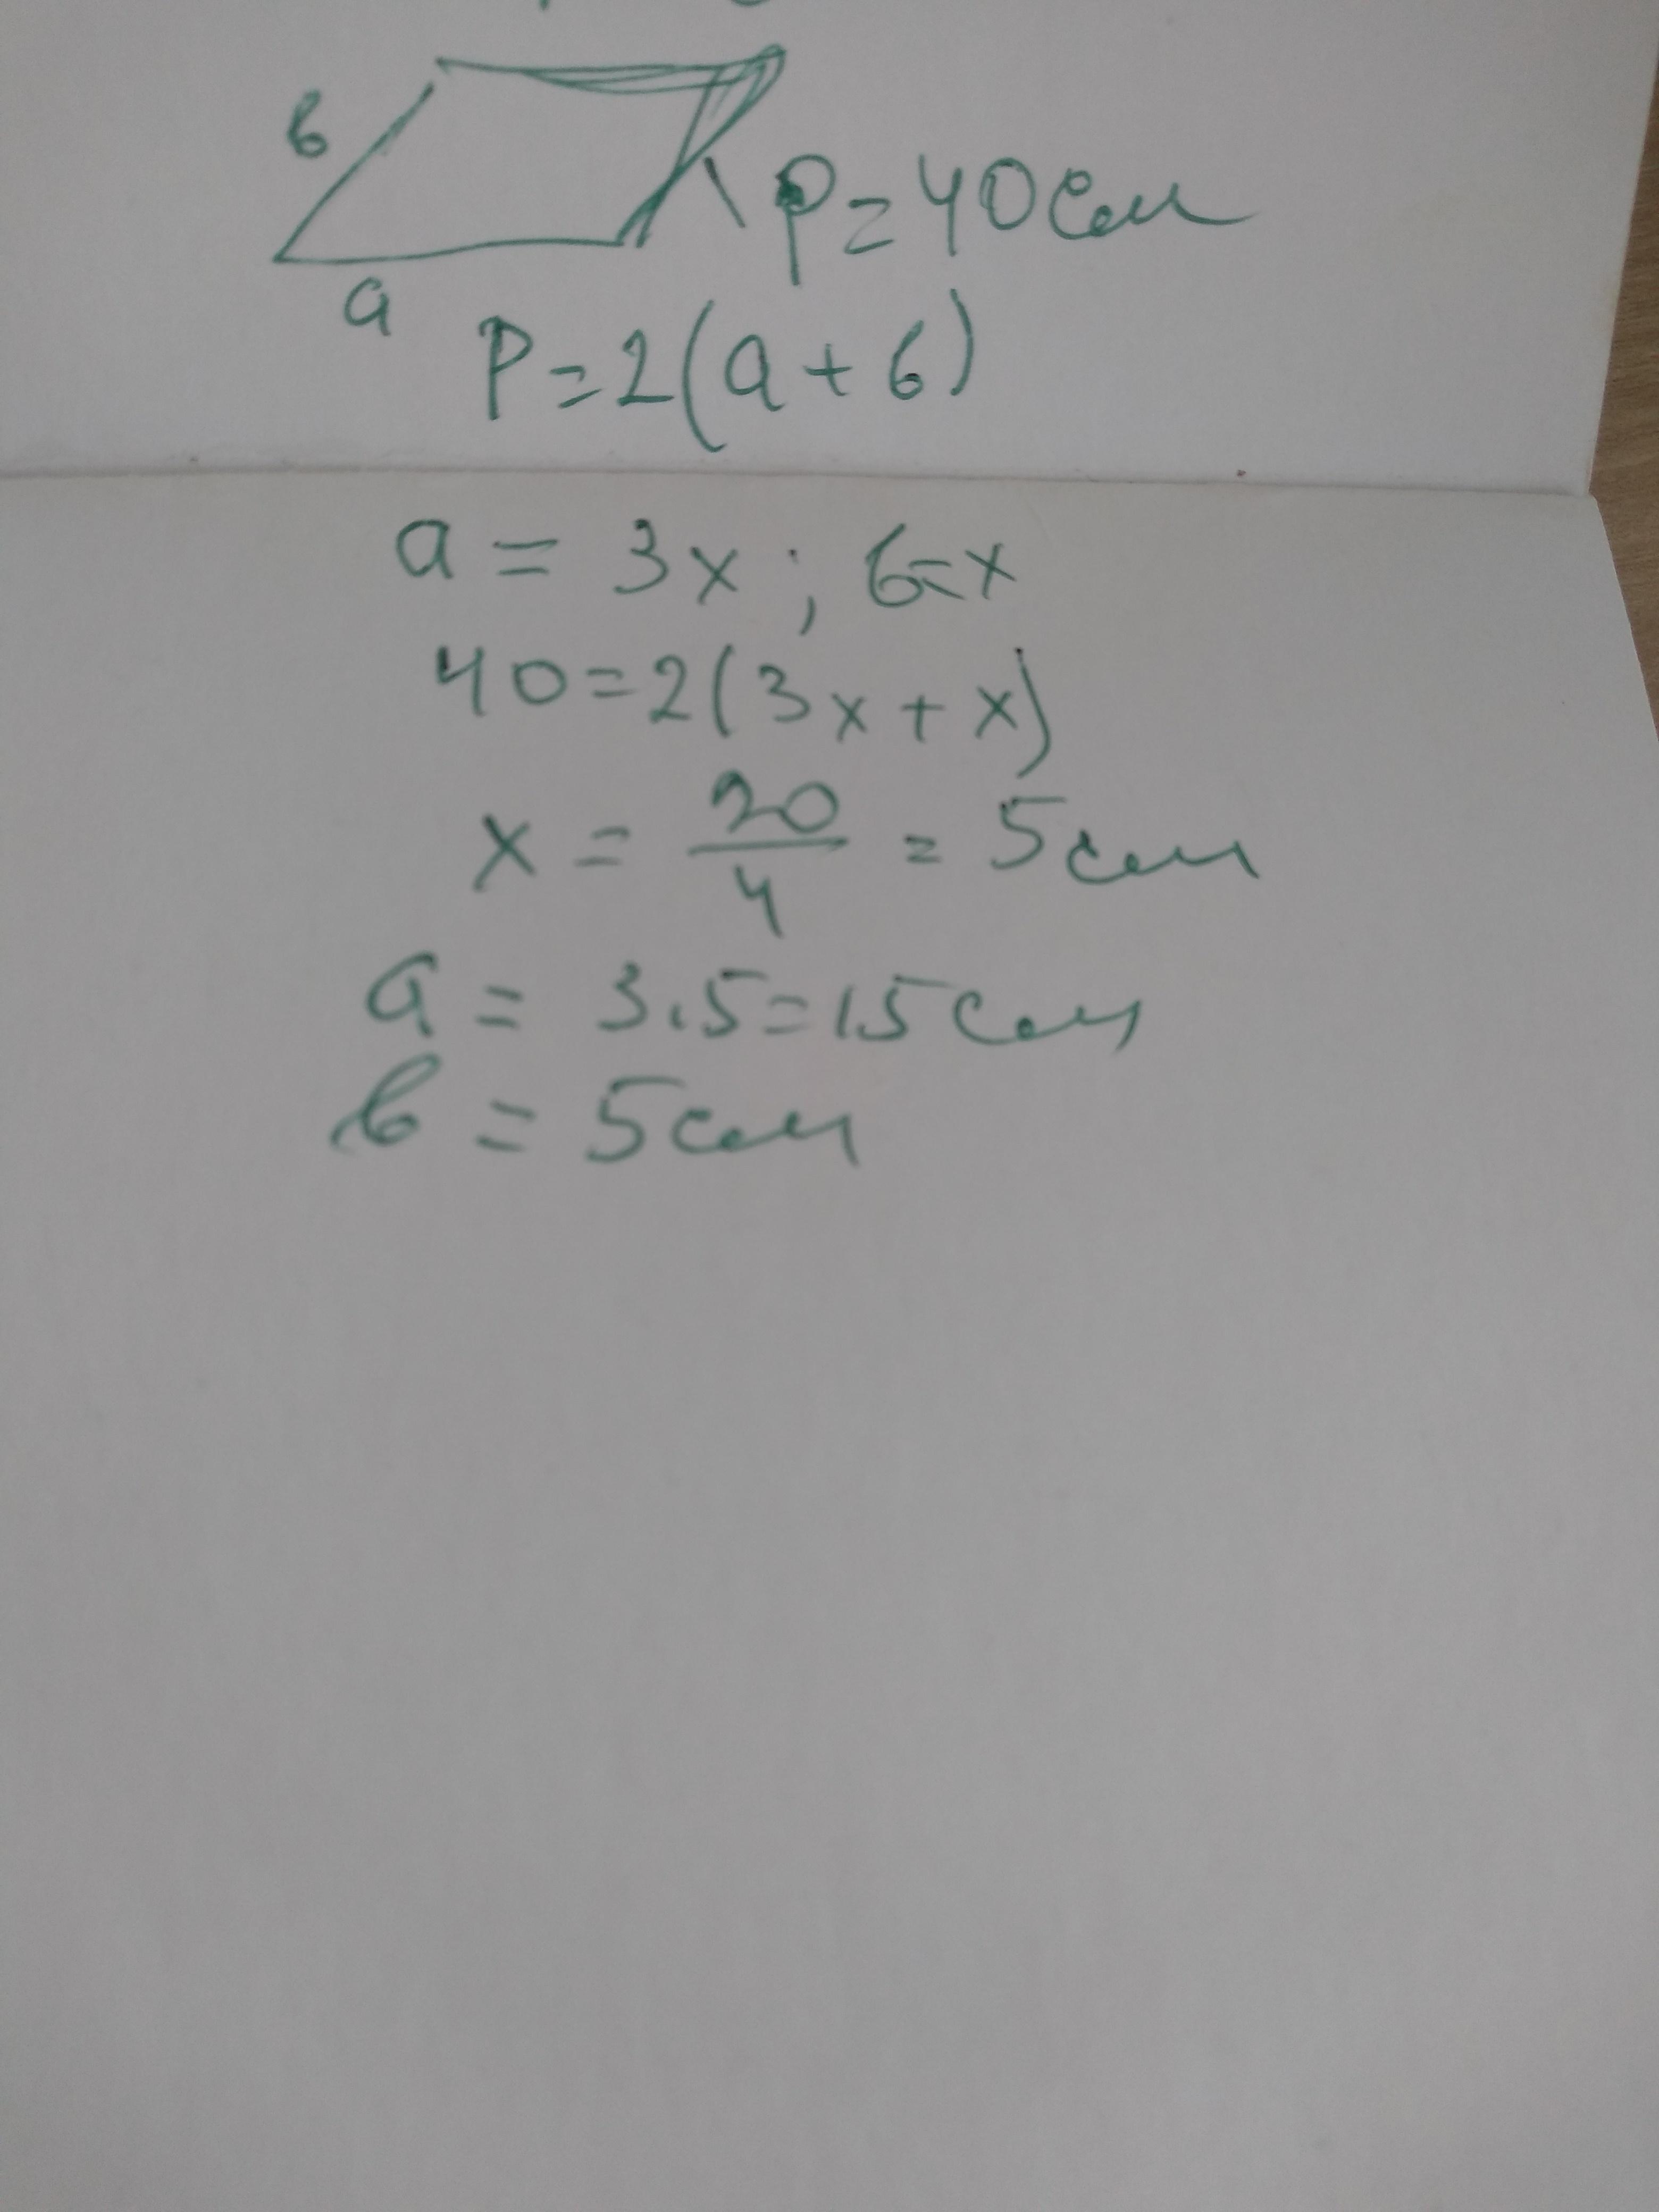 в
P=40см
a
P=2(a+в)
a = 3x ; в=x
40=2(3x+x)
x = 20/4 = 5см
a = 3.5=15см
в = 5см